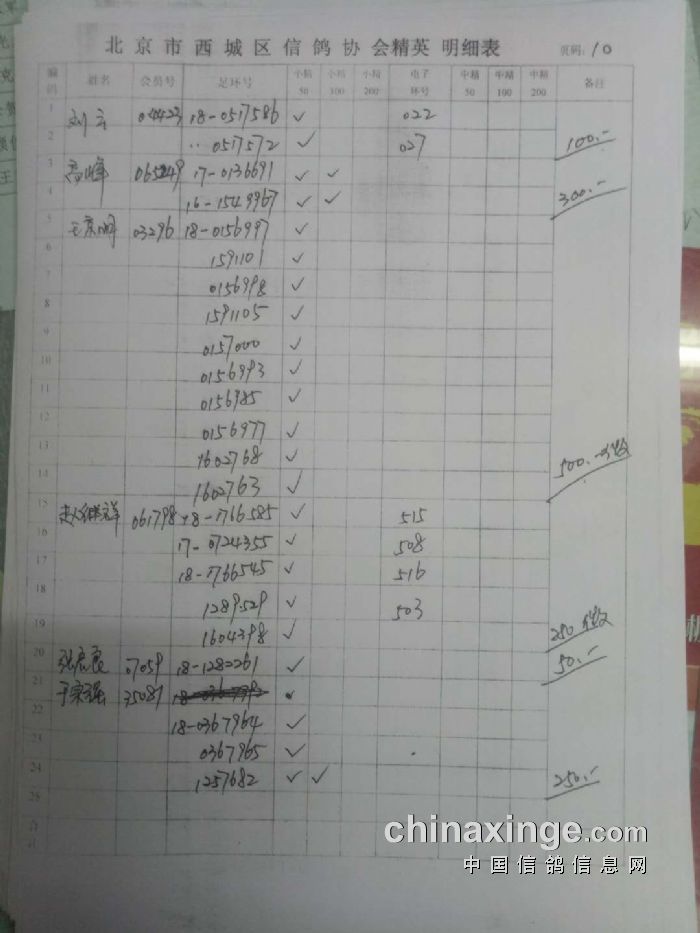 北京市西城区信鸽协会精英明细表 页码:10
编码 姓名 会员号 足环号 小精50 小精100 小精200 电子环号 中精50 中精100 中精200 备注
1 刘云 04423 18-0517586 ✓ 022
2 ‥ 0517572 ✓ 027 100.-
3 高峰 065249 17-0136691 ✓ ✓
4 16-1549967 ✓ ✓ 300.-
5 王京明 03296 18-0156997 ✓
6 1591101 ✓
7 0156998 ✓
8 1591105 ✓
9 0157000 ✓
10 0156993 ✓
11 0156985 ✓
12 0156977 ✓
13 1602768 ✓
14 1602763 ✓ 500.-
15 061798 18-1766585 ✓ 515
16 17-0724355 ✓ 508
17 18-1766545 ✓ 516
18 1289529 ✓ 503
19 1604398 ✓ 250
20 07059 18-1282261 ✓ 50.-
21 35087
22 18-0367964 ✓
23 0367965 ✓
24 1257682 ✓ ✓ 250.-
chinaxinge.com
中国信鸽信息网